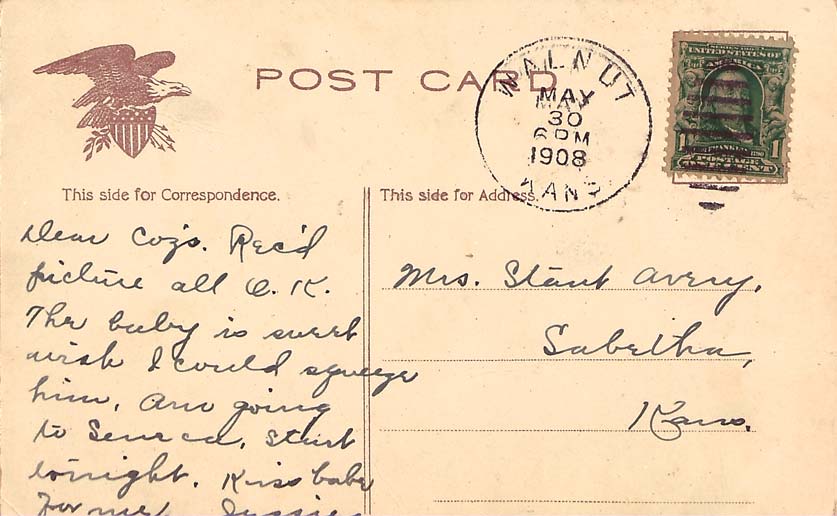 POST CARD
WALNUT
MAY
30
6 PM
1908
KANS
SERIES 1902
UNITED STATES OF AMERICA
FRANKLIN
1 1
This side for Correspondence.
This side for Address.
Dear Coz's. Rec'd
picture all O.K.
The baby is sweet
wish I could squeeze
him, Am going
to Seneca, Start
tonight. Kiss babe
for me. Jessie
Mrs. Stant Avery,
Sabetha,
Kans.